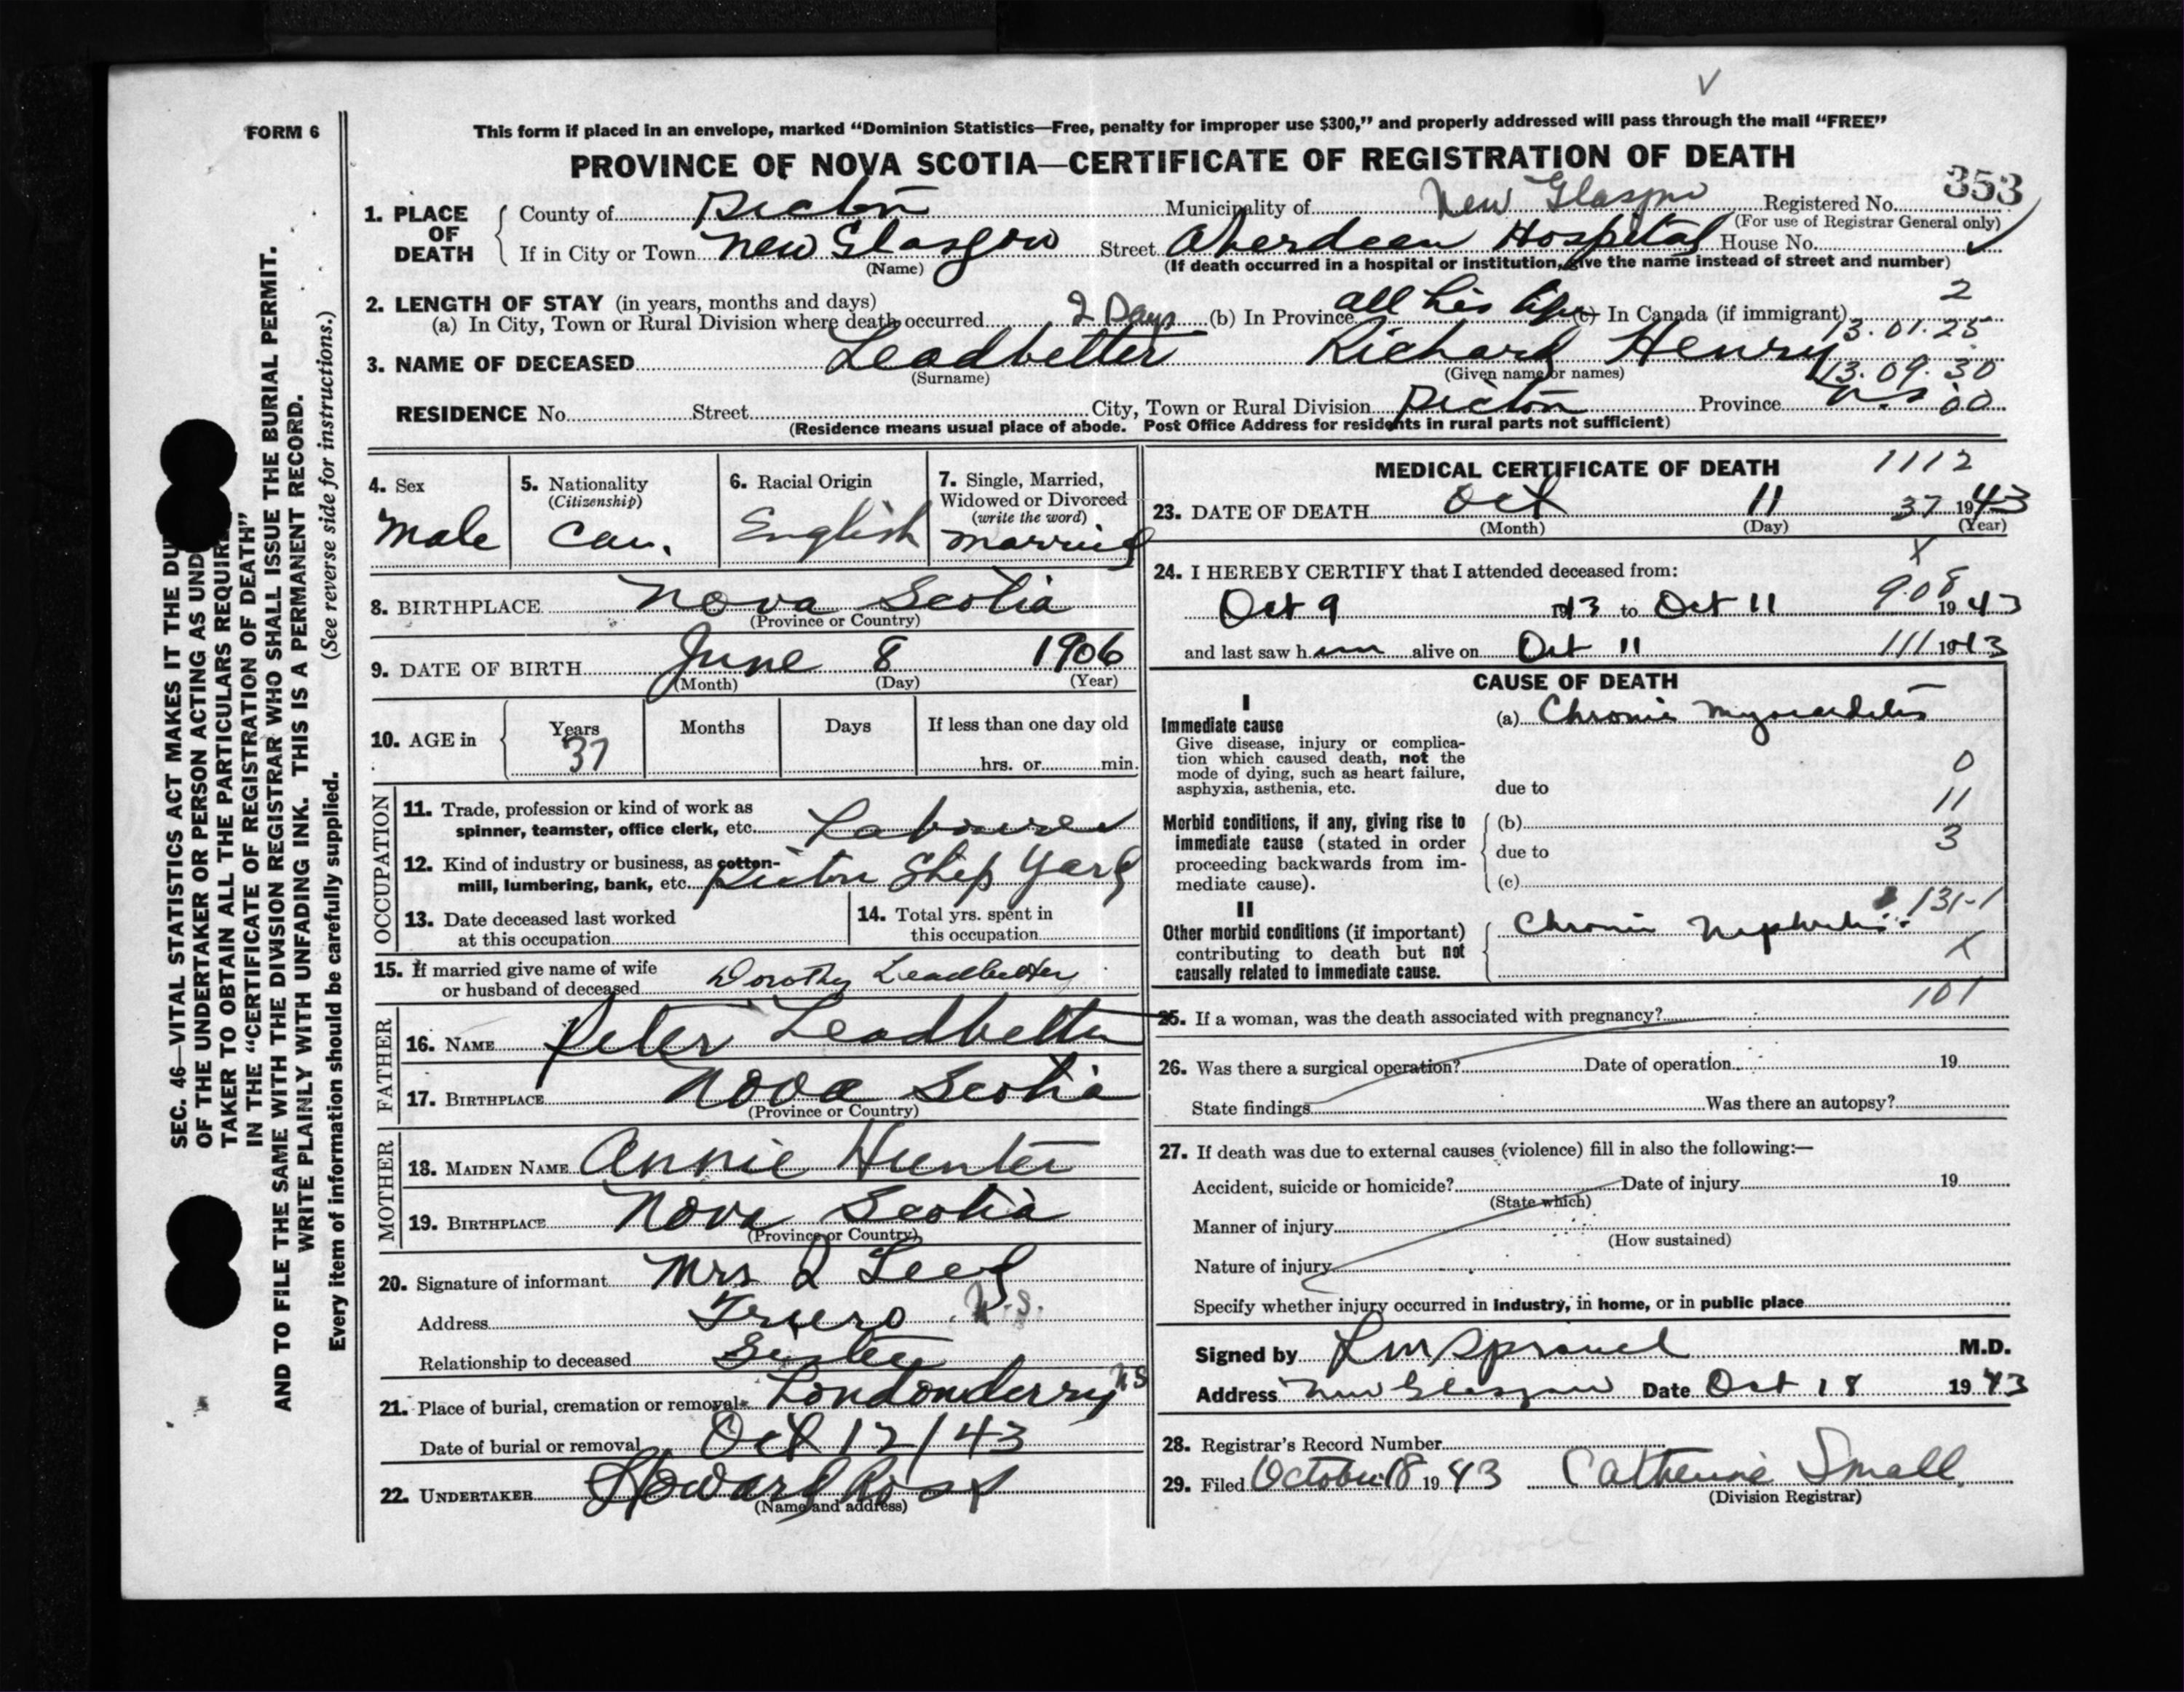 FORM 6
This form if placed in an envelope, marked “Dominion Statistics—Free, penalty for improper use $300,” and properly addressed will pass through the mail “FREE”
PROVINCE OF NOVA SCOTIA—CERTIFICATE OF REGISTRATION OF DEATH
353
1. PLACE OF DEATH
County of Pictou Municipality of New Glasgow Registered No.
(For use of Registrar General only)
If in City or Town New Glasgow Street Aberdeen Hospital House No.
(Name) (If death occurred in a hospital or institution, give the name instead of street and number)
2. LENGTH OF STAY (in years, months and days) 2
(a) In City, Town or Rural Division where death occurred 2 Days (b) In Province all his life (c) In Canada (if immigrant)
13.01.25
3. NAME OF DECEASED Leadbetter Richard Henry
(Surname) (Given name or names) 13.09.30
RESIDENCE No. Street City, Town or Rural Division Pictou Province N.S 00
(Residence means usual place of abode. Post Office Address for residents in rural parts not sufficient)
4. Sex
Male
5. Nationality
(Citizenship)
Can.
6. Racial Origin
English
7. Single, Married,
Widowed or Divorced
(write the word)
Married
8. BIRTHPLACE Nova Scotia
(Province or Country)
9. DATE OF BIRTH June 8 1906
(Month) (Day) (Year)
10. AGE in
Years Months Days If less than one day old
37 hrs. or min.
OCCUPATION
11. Trade, profession or kind of work as
spinner, teamster, office clerk, etc. Labourer
12. Kind of industry or business, as cotton-
mill, lumbering, bank, etc. Pictou Ship Yard
13. Date deceased last worked
at this occupation
14. Total yrs. spent in
this occupation
15. If married give name of wife
or husband of deceased Dorothy Leadbetter
FATHER
16. NAME Peter Leadbetter
17. BIRTHPLACE Nova Scotia
(Province or Country)
MOTHER
18. MAIDEN NAME Annie Hunter
19. BIRTHPLACE Nova Scotia
(Province or Country)
20. Signature of informant Mrs
Address Truro N.S.
Relationship to deceased Sister
21. Place of burial, cremation or removal Londonderry NS
Date of burial or removal Oct 12/43
22. UNDERTAKER Howard Ross
(Name and address)
MEDICAL CERTIFICATE OF DEATH 1112
23. DATE OF DEATH Oct 11 37 1943
(Month) (Day) (Year)
X
24. I HEREBY CERTIFY that I attended deceased from:
9.08
Oct 9 1943 to Oct 11 1943
and last saw him alive on Oct 11 111 1943
CAUSE OF DEATH
I
Immediate cause
Give disease, injury or complica-
tion which caused death, not the
mode of dying, such as heart failure,
asphyxia, asthenia, etc.
(a) Chronic Myocarditis
0
due to
11
Morbid conditions, if any, giving rise to
immediate cause (stated in order
proceeding backwards from im-
mediate cause).
(b)
3
due to
(c)
II
131-1
Other morbid conditions (if important)
contributing to death but not
causally related to immediate cause.
Chronic Nephritis
X
101
25. If a woman, was the death associated with pregnancy?
26. Was there a surgical operation? Date of operation 19
State findings Was there an autopsy?
27. If death was due to external causes (violence) fill in also the following:—
Accident, suicide or homicide? Date of injury 19
(State which)
Manner of injury
(How sustained)
Nature of injury
Specify whether injury occurred in industry, in home, or in public place
Signed by L M Sproul M.D.
Address New Glasgow Date Oct 18 1943
28. Registrar's Record Number
29. Filed October 18 1943 Catherine Small
(Division Registrar)
SEC. 46—VITAL STATISTICS ACT MAKES IT THE DU
OF THE UNDERTAKER OR PERSON ACTING AS UND
TAKER TO OBTAIN ALL THE PARTICULARS REQUIRE
IN THE “CERTIFICATE OF REGISTRATION OF DEATH”
AND TO FILE THE SAME WITH THE DIVISION REGISTRAR WHO SHALL ISSUE THE BURIAL PERMIT.
WRITE PLAINLY WITH UNFADING INK. THIS IS A PERMANENT RECORD.
Every item of information should be carefully supplied. (See reverse side for instructions.)